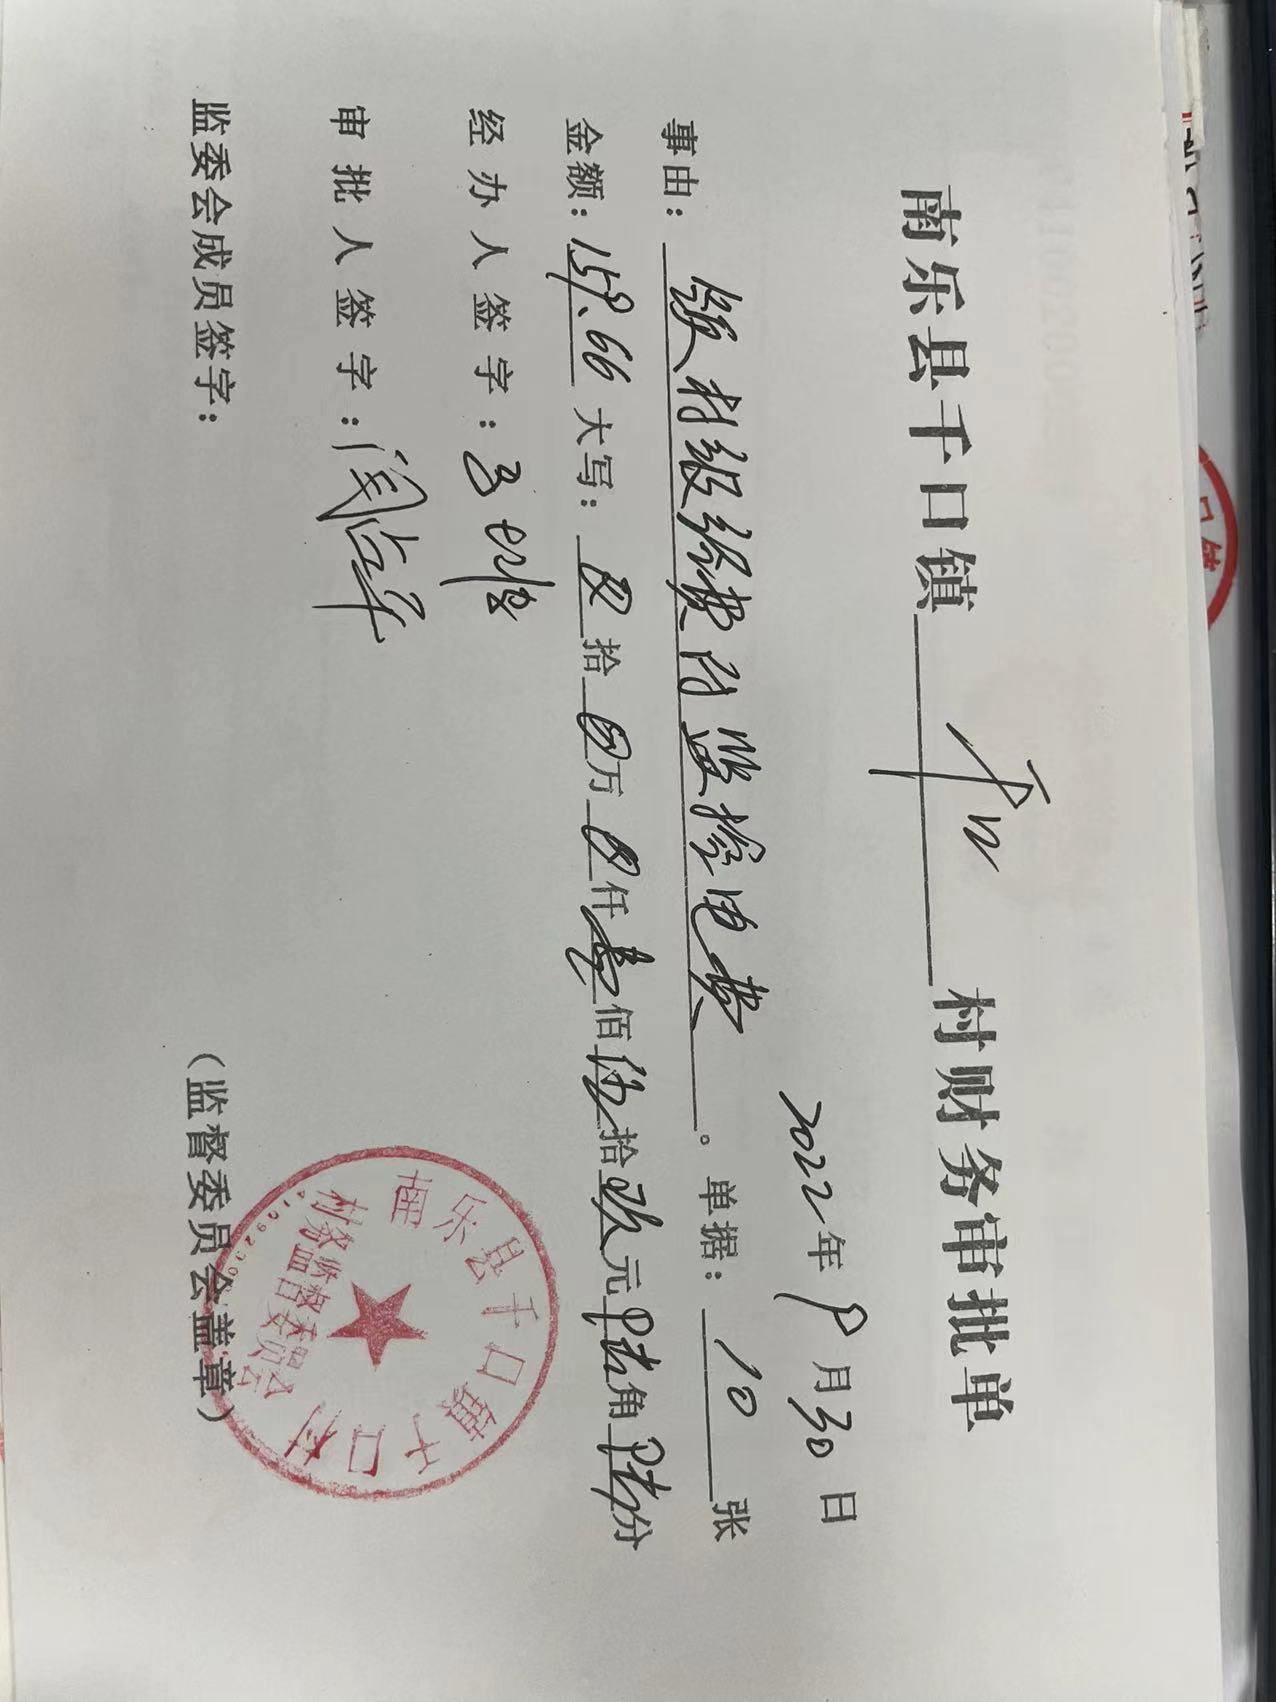 南乐县千口镇 千口 村财务审批单
2022年9月30日
事由: 领村级经费付监控电费。单据: 10 张
金额: 159.66 大写: ⊗拾⊗万⊗仟壹佰伍拾玖元陆角陆分
经办人签字:
审批人签字:
监委会成员签字:
(监督委员会盖章)
南乐县千口镇千口村
村务监督委员会